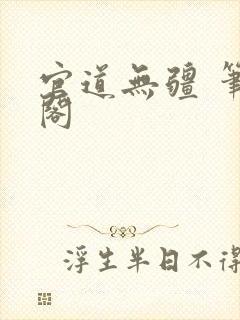 官道無疆 筆
閣
浮生半日不得